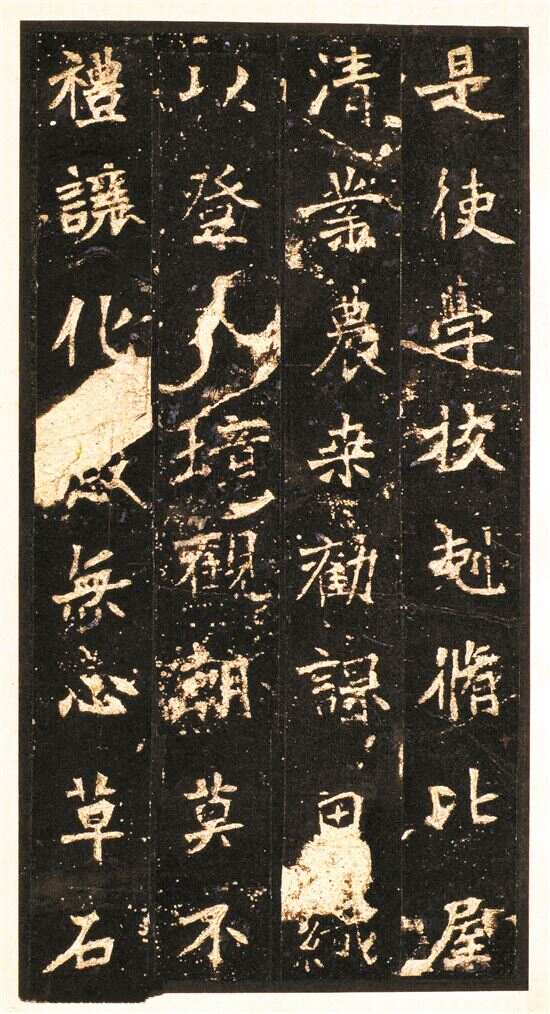 是使學校剋脩比屋
清業農桒勸課田織
以登人境觀朝莫不
禮讓化敀無忘草石